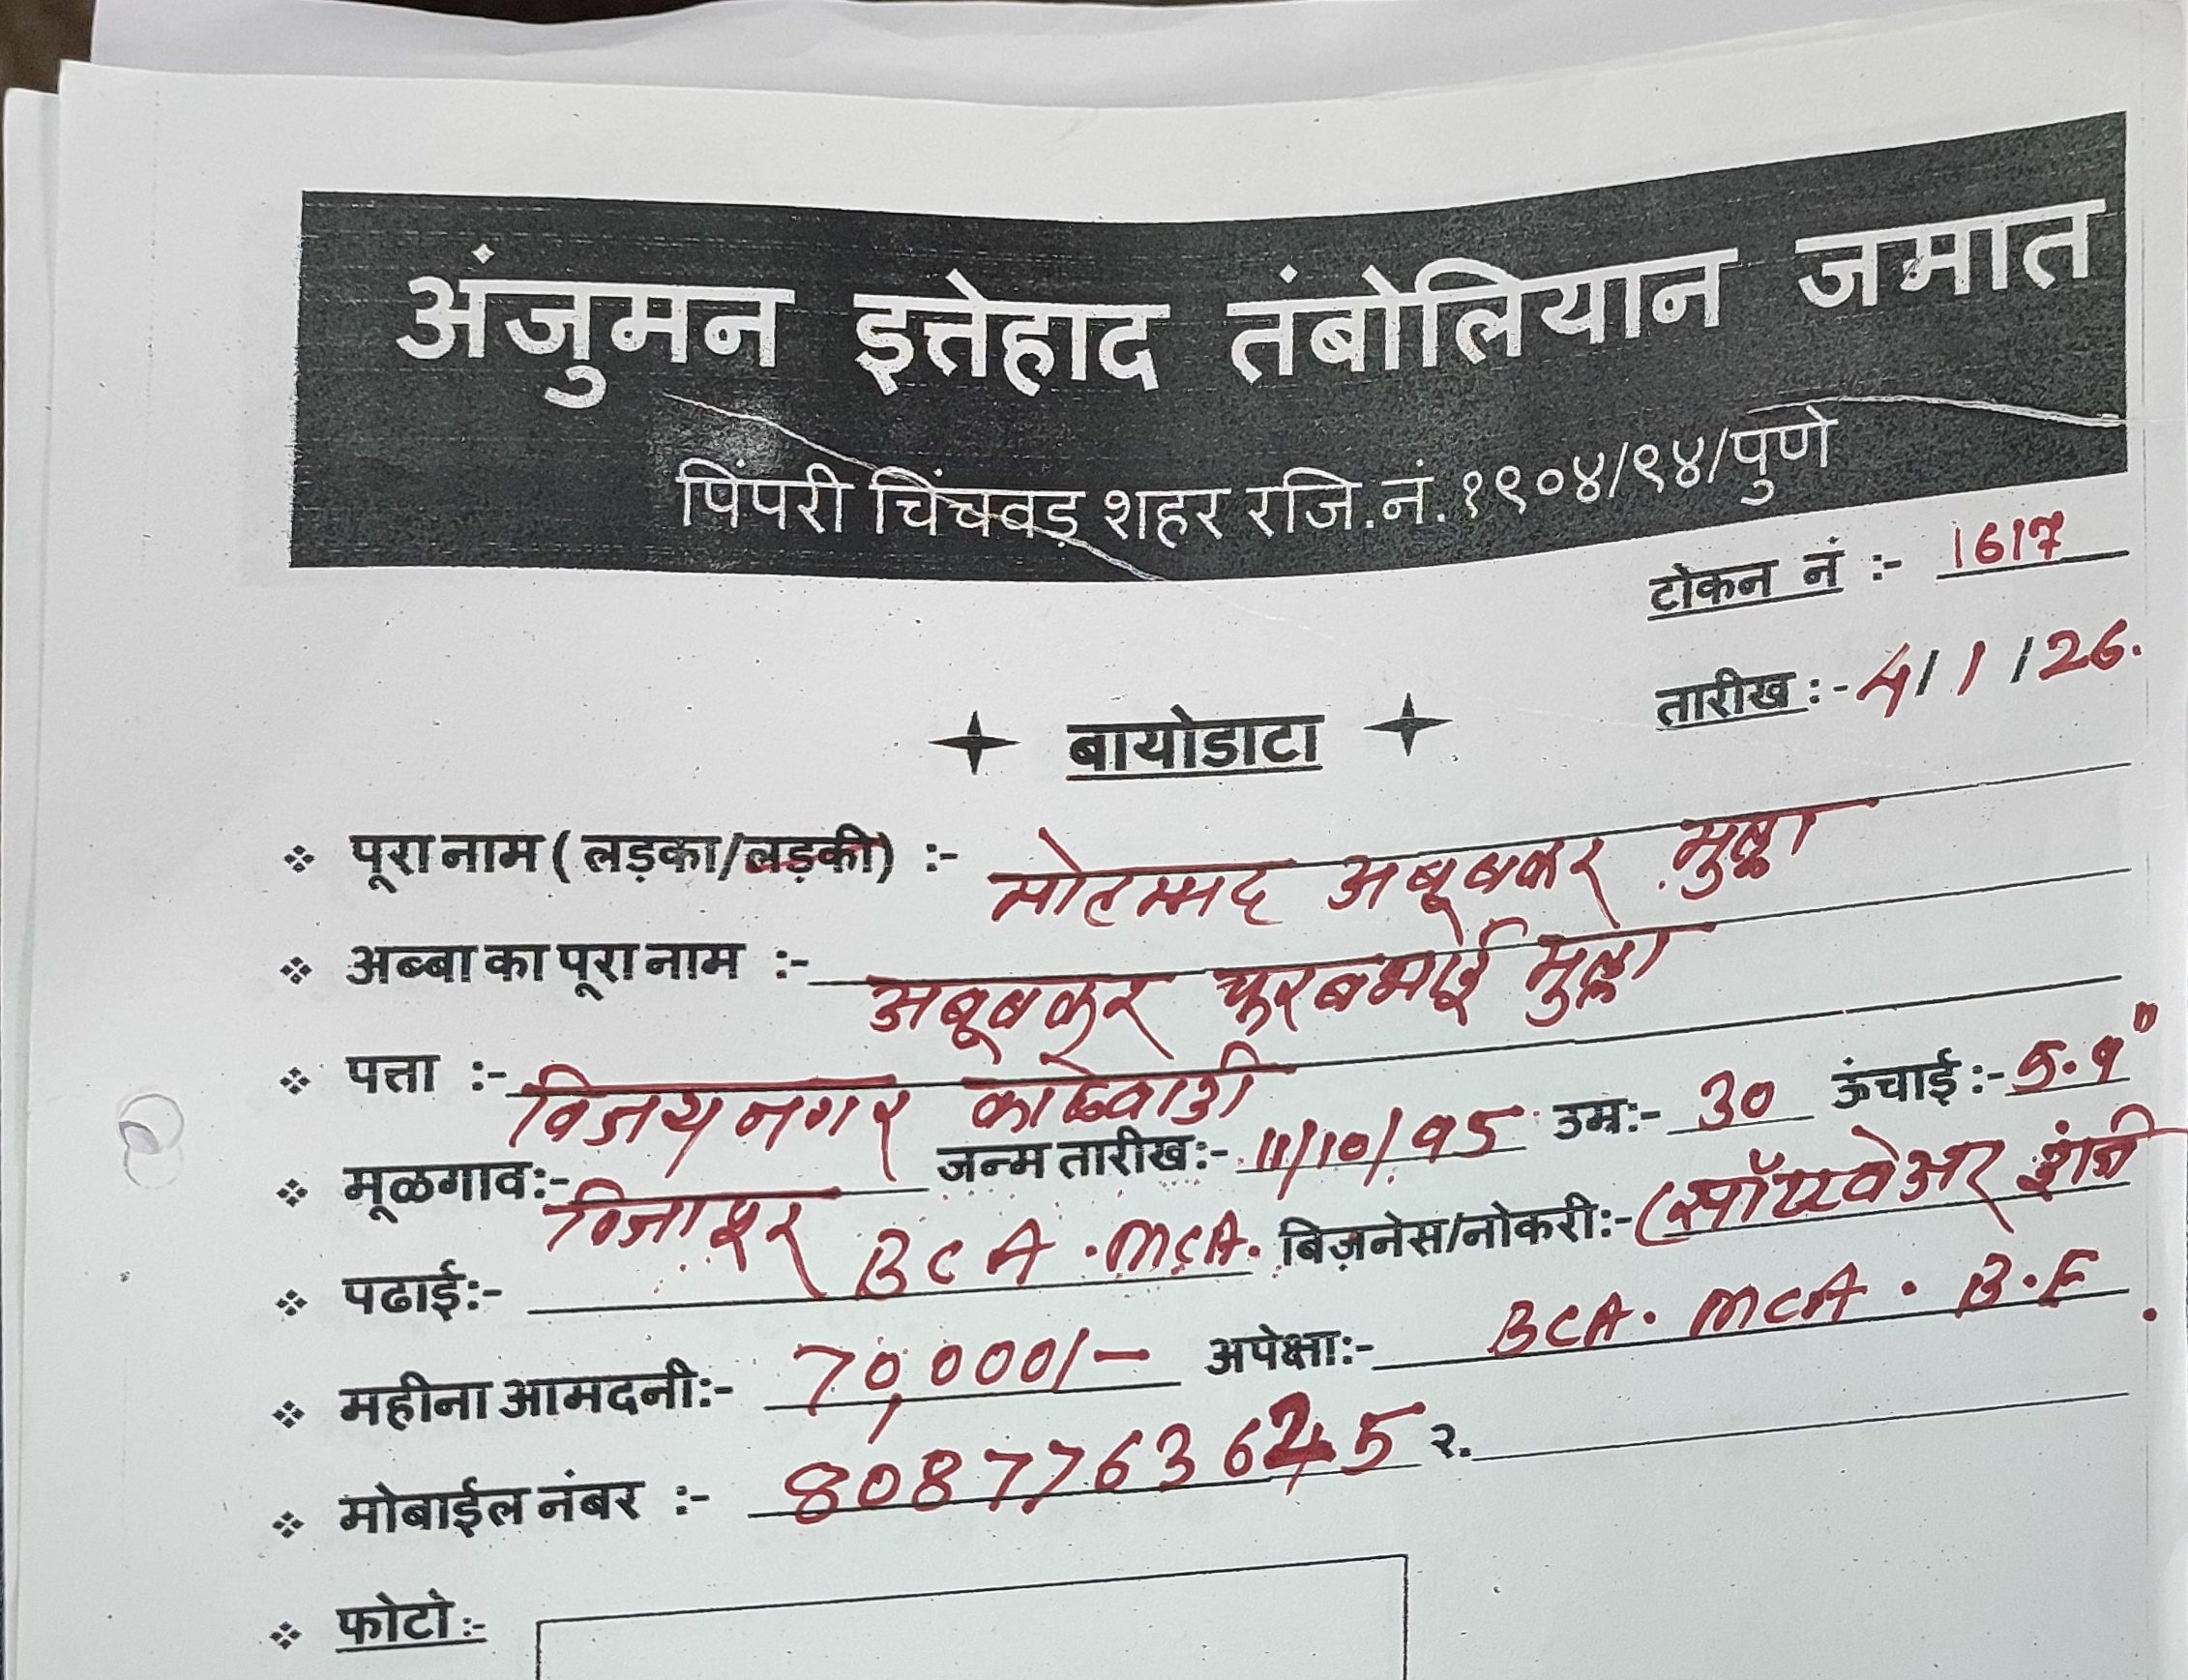 अंजुमन इत्तेहाद तंबोलियान जमात
पिंपरी चिंचवड़ शहर रजि.नं. १९०४/९४/पुणे
टोकन नं :- 1617
तारीख :- 4/1/26.
बायोडाटा
पूरा नाम ( लड़का/लड़की) :- मोहम्मद अबूबकर मुल्ला
अब्बा का पूरा नाम :- अबूबकर मुल्ला
पत्ता :- विजयनगर काळेवाडी
मूळगाव:- विजापूर जन्म तारीख:- 11/10/95 उम्र:- 30 ऊंचाई :- 5.9"
पढाई:- BCA.MCA. बिज़नेस/नोकरी:- (सॉफ्टवेअर इंजि
महीना आमदनी:- 70,000/- अपेक्षा:- BCA. MCA. B.E.
मोबाईल नंबर :- 8087763625 २.
फोटो :-